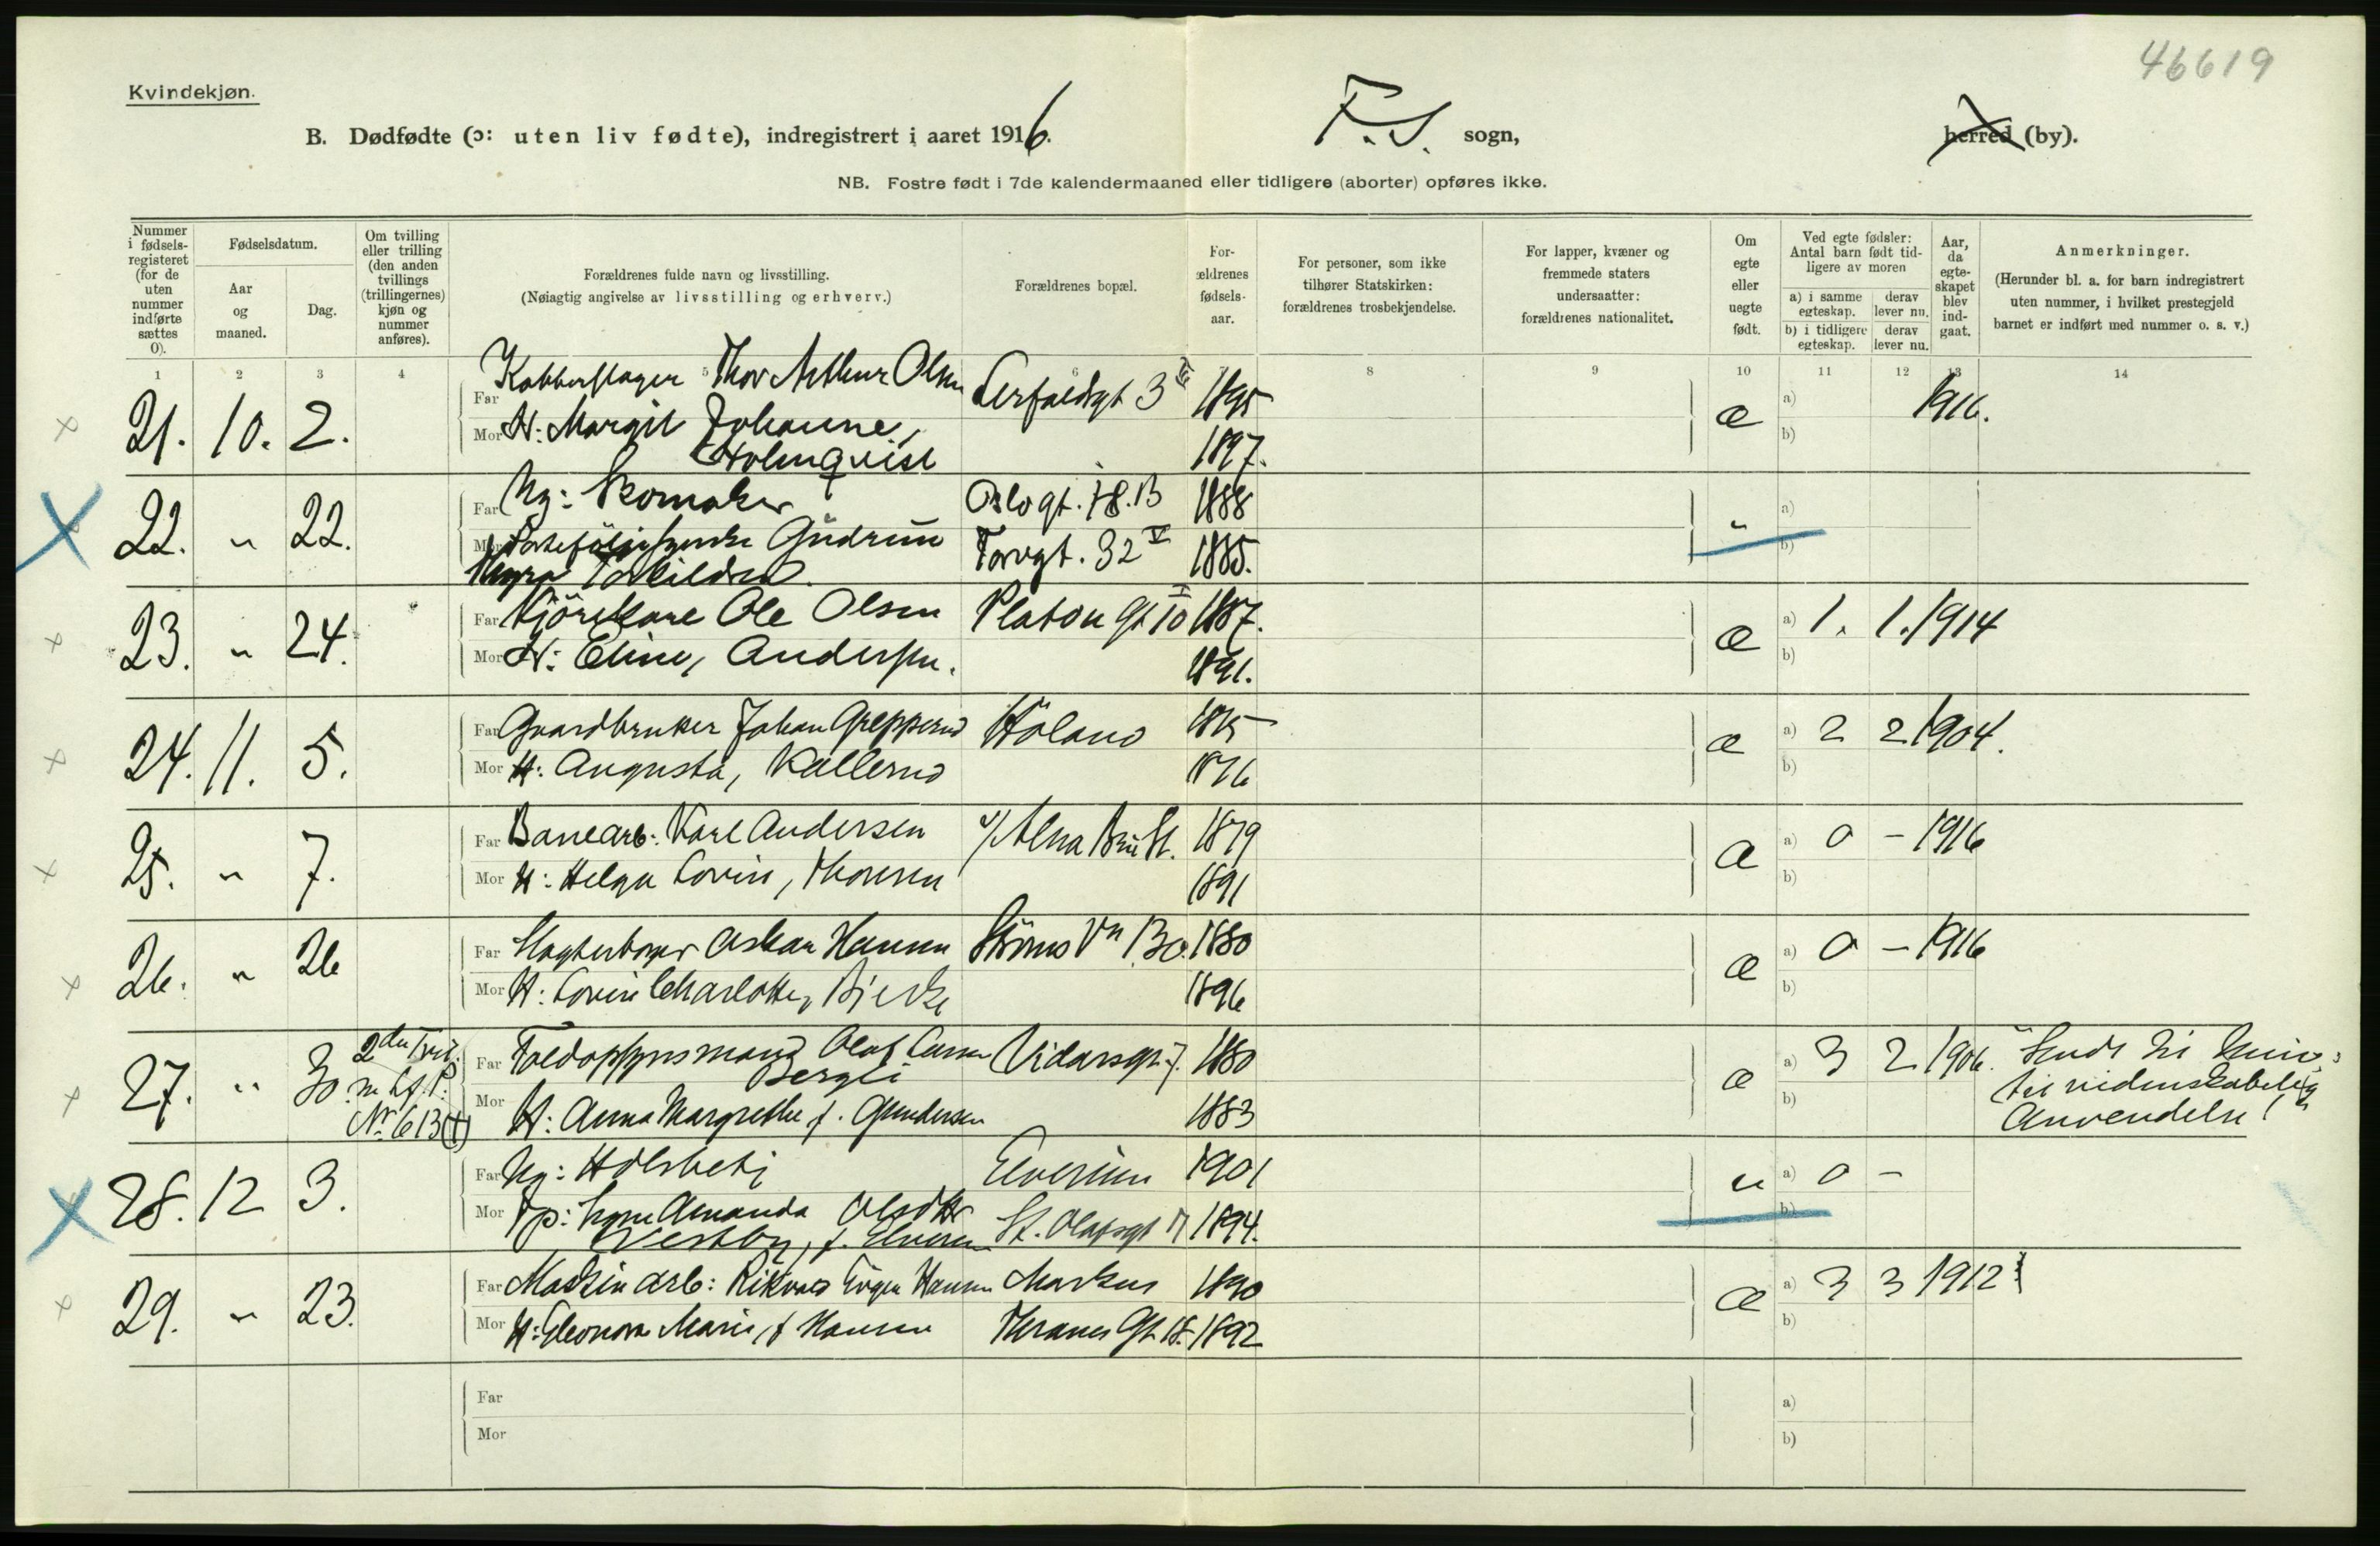 46619
Kvindekjøn.
B. Dødfødte (ɔ: uten liv fødte), indregistrert i aaret 1916.
F.S. sogn,
herred (by).
NB. Fostre født i 7de kalendermaaned eller tidligere (aborter) opføres ikke.
Nummer i fødsels-registeret (for de uten nummer indførte sættes 0).
Fødselsdatum.
Aar og maaned.
Dag.
Om tvilling eller trilling (den anden tvillings (trillingernes) kjøn og nummer anføres).
Forældrenes fulde navn og livsstilling.
(Nøiagtig angivelse av livsstilling og erhverv.)
Forældrenes bopæl.
For-ældrenes fødsels-aar.
For personer, som ikke tilhører Statskirken: forældrenes trosbekjendelse.
For lapper, kvæner og fremmede staters undersaatter: forældrenes nationalitet.
Om egte eller uegte født.
Ved egte fødsler: Antal barn født tid-ligere av moren
a) i samme egteskap.
derav lever nu.
b) i tidligere egteskap.
derav lever nu.
Aar, da egte-skapet blev ind-gaat.
Anmerkninger.
(Herunder bl. a. for barn indregistrert uten nummer, i hvilket prestegjeld barnet er indført med nummer o. s. v.)
1 2 3 4 5 6 8 9 10 11 12 13 14
21. 10. 2. Far Kobberslager Thor Arthur Olsen 1895 æ a) 1916.
Mor H: Margit Johanne, 1897. b)
Holmquist
22. " 22. Far Ug: Skomaker Oslogt. 18.B 1888 " a)
Mor Gudrun Torvgt. 32 V 1885. b)
23. " 24. Far Kjørekare Ole Olsen Platou Gt 10 1887. æ a) 1. 1. 1914
Mor H: Eline, Andersen. 1891. b)
24. 11. 5. Far Gaardbruker Johan Grepperud Höland 1875 æ a) 2 2 1904.
Mor H: Augusta, Kallerud 1876 b)
25. " 7. Far Banearb: Karl Andersen v/ Alna Bru St. 1879 æ a) 0 - 1916
Mor H: Helga Lovise, Thoresen 1891 b)
26. " 26 Far Oskar Hansen Ströms Vn 130. 1880 æ a) 0 - 1916
Mor H: Lovise Charlotte, Bjerke 1896 b)
27. " 30. 2den Tvil. Far Toldopsynsmand Olaf Larsen Vidarsgt. 7. 1880 æ a) 3 2 1906.
Bergli
Nr. 613 (†) Mor H: Anna Margrethe f. Gundersen 1883 b)
til videnskabelig
Anvendelse!
28. 12 3. Far Ug: Elverum 1901 u a) 0 -
Mor Amanda Olsdtr St. Olafsgt 17 1894. b)
Vestby, f. Elverum
29. " 23. Far Maskinarb: Rikvard Hansen Markus 1890 æ a) 3 3 1912
Mor H: Eleonora Marie, f Hansen Thranes Gt. 18. 1892 b)
Far a)
Mor b)